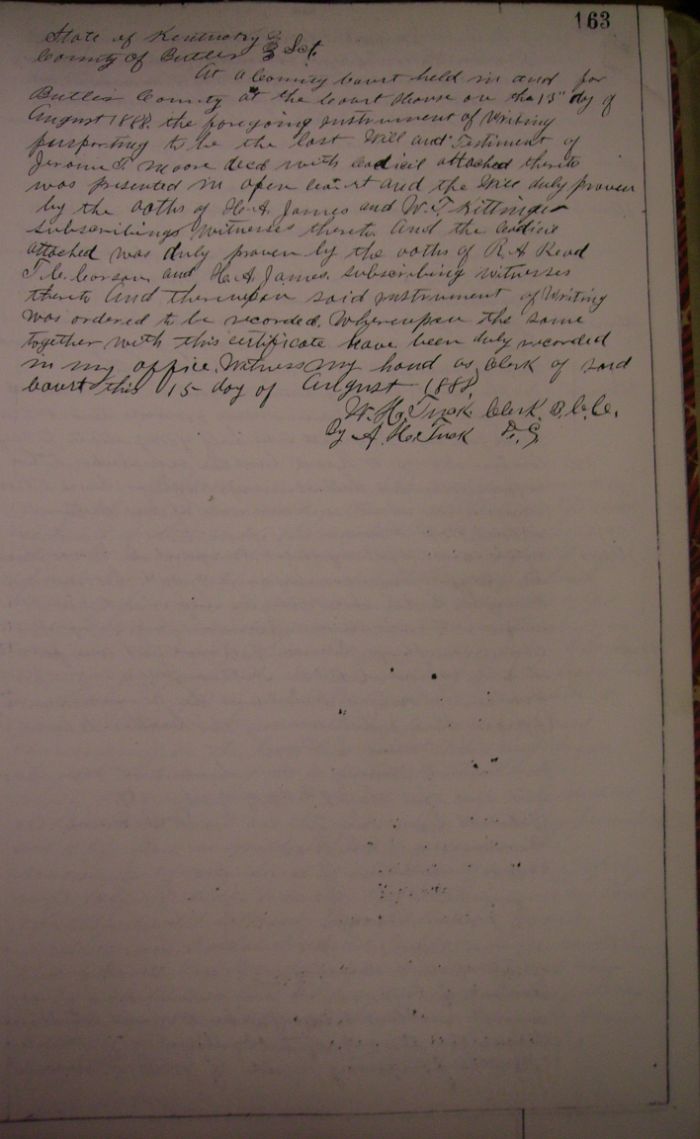 163
State of Kentucky
County of Butler } Sct.
At a County Court held in and for
Butler County at the Court House on the 13" day of
August 1888. the foregoing instrument of Writing
purporting to be the last Will and Testiment of
Jerome T. Moore decd with Codicil attached thereto
was presented in open court and the Will duly proven
by the oaths of H. A. James and W. T. Kittinger
subscribing witnesses thereto and the Codicil
attached was duly proven by the oaths of R. A. Read
T. C. Carson and H. A. James. subscribing witnesses
thereto and thereupon said instrument of Writing
was ordered to be recorded. Whereupon the same
together with this certificate have been duly recorded
in my office. Witness my hand as Clerk of said
Court this 15 day of August 1888,
W. H. Tuck Clerk B. C. C.
By A. H. Tuck D. C.